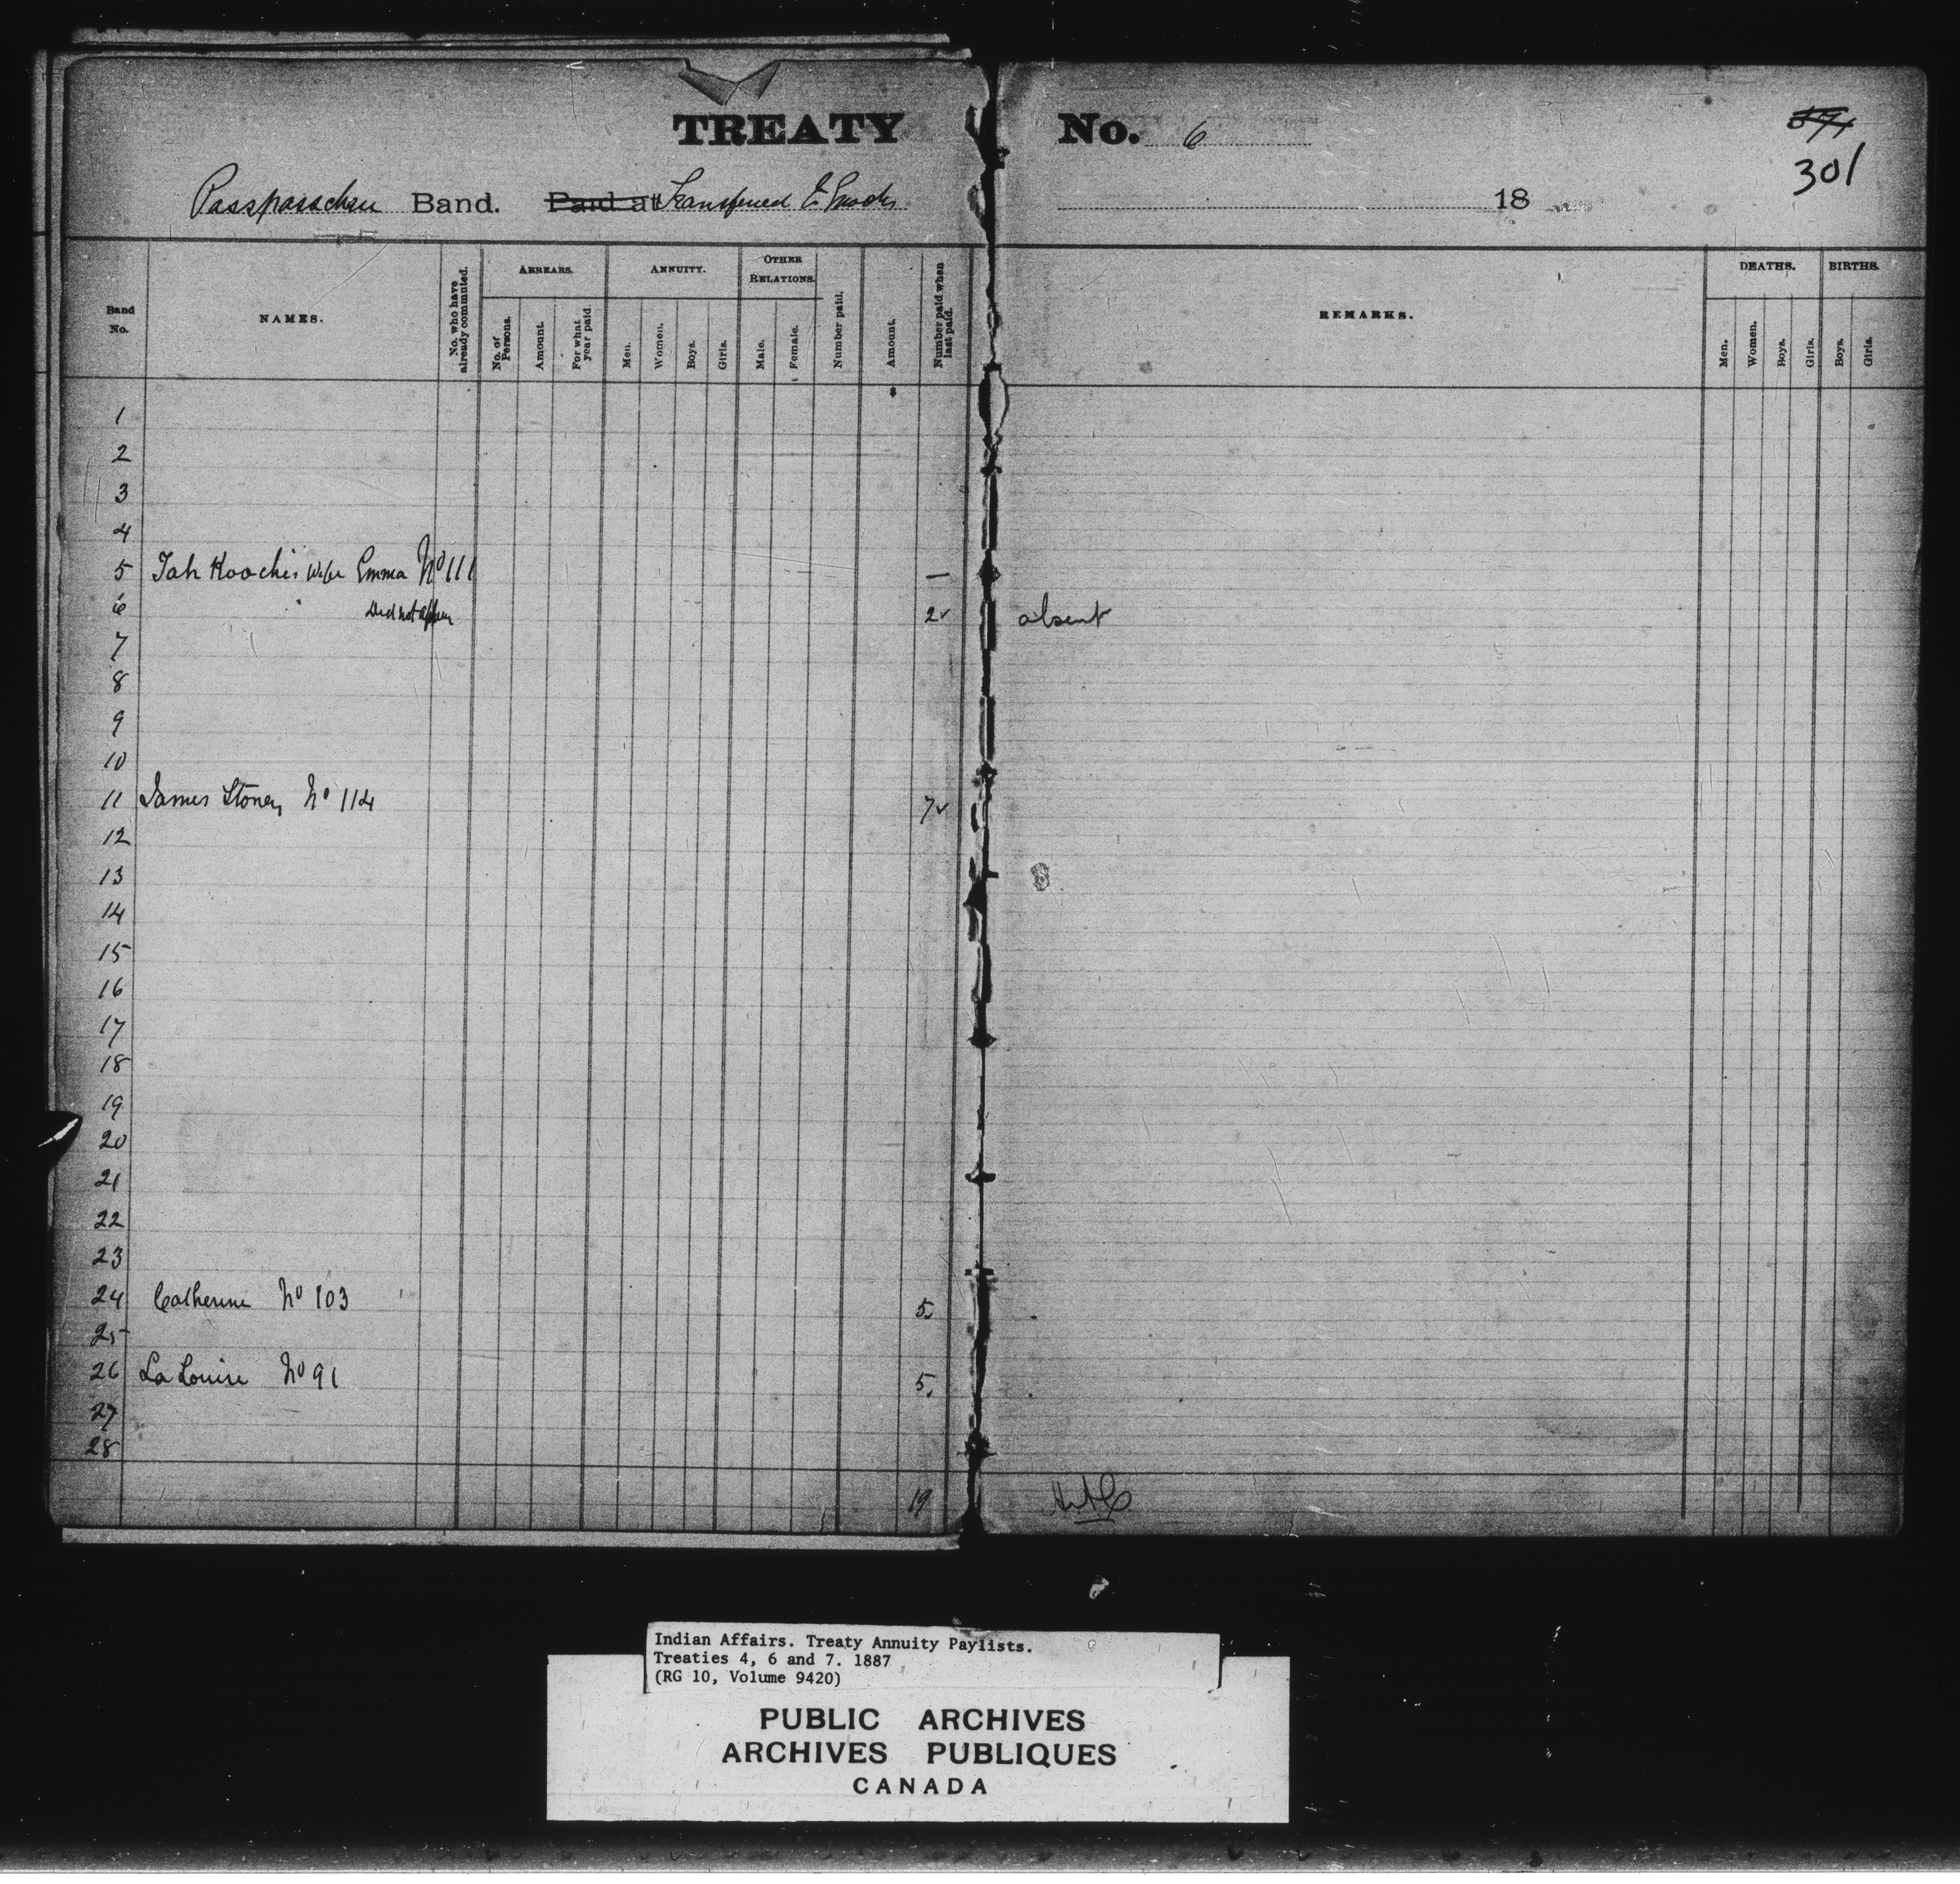 TREATY No. 6
301
Passpasschase Band. Paid at Transferred to Enochs 18
Band No.
NAMES.
No. who have already commuted.
ARREARS.
No. of Persons.
Amount.
For what year paid.
ANNUITY.
Men.
Women.
Boys.
Girls.
OTHER RELATIONS.
Male.
Female.
Number paid.
Amount.
Number paid when last paid.
REMARKS.
DEATHS.
Men.
Women.
Boys.
Girls.
BIRTHS.
Boys.
Girls.
1
2
3
4
5 Tah Koochis Wife Emma No 111 —
6 Did not appear 2 absent
7
8
9
10
11 James Stoney No 114 7
12
13
14
15
16
17
18
19
20
21
22
23
24 Catherine No 103 5
25
26 La Louise No 91 5
27
28
19
Indian Affairs. Treaty Annuity Paylists.
Treaties 4, 6 and 7. 1887
(RG 10, Volume 9420)
PUBLIC ARCHIVES
ARCHIVES PUBLIQUES
CANADA